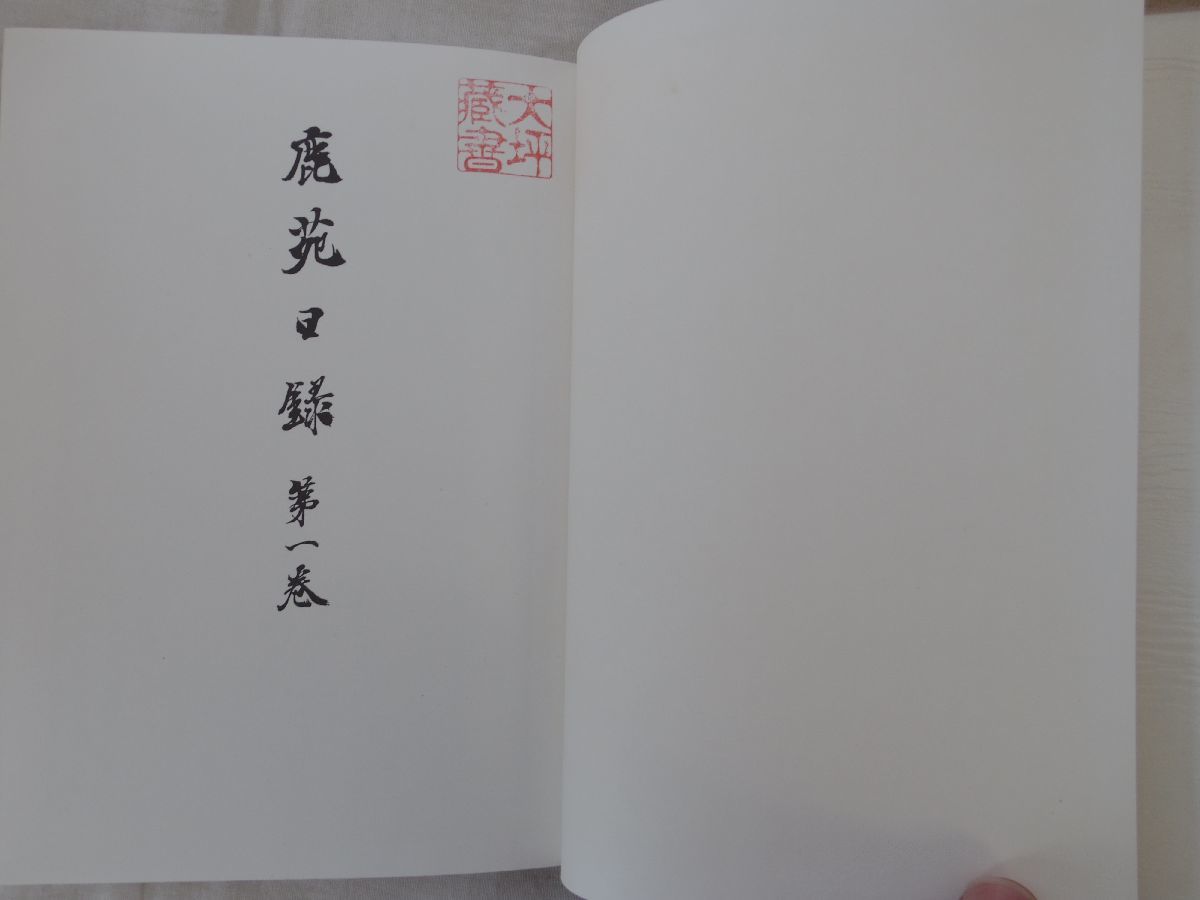 大坪
蔵書
鹿苑日録 第一巻